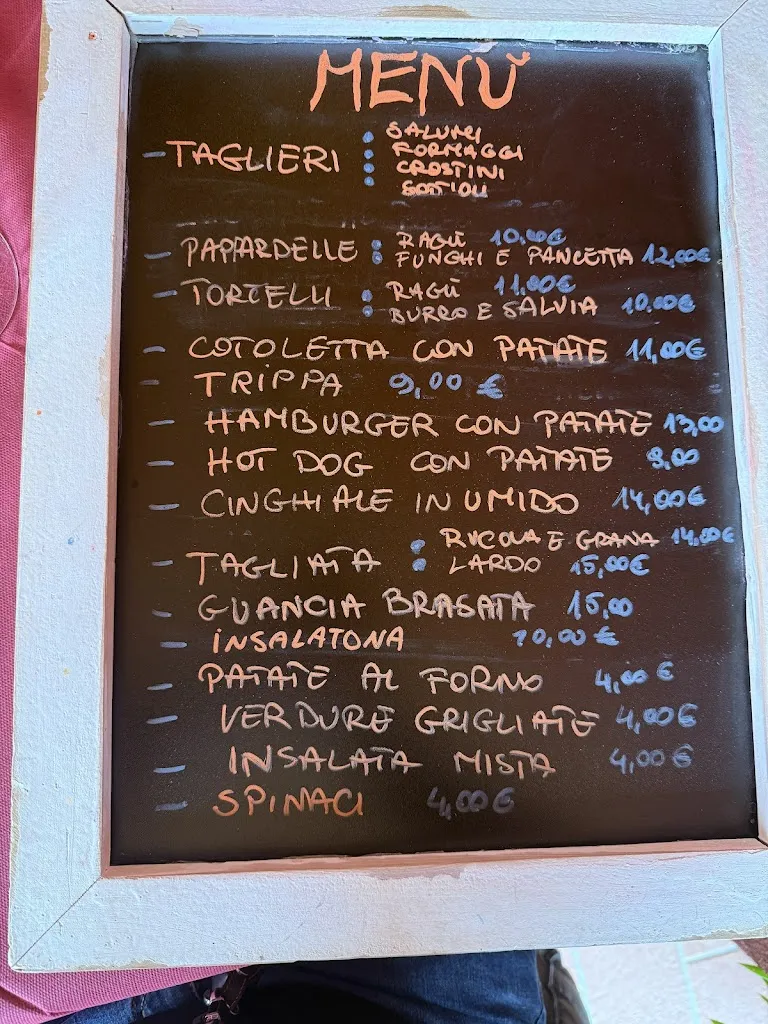 MENÙ
- TAGLIERI : SALUMI
FORMAGGI
CROSTINI
SOTTOLI
- PAPPARDELLE : RAGÙ 10,00€
FUNGHI E PANCETTA 12,00€
- TORTELLI : RAGÙ 11,00€
BURRO E SALVIA 10,00€
- COTOLETTA CON PATATE 11,00€
- TRIPPA 9,00 €
- HAMBURGER CON PATATE 13,00
- HOT DOG CON PATATE
- CINGHIALE IN UMIDO 14,00€
- TAGLIATA : RUCOLA E GRANA 14,00€
LARDO 15,00€
- GUANCIA BRASATA 15,00
- INSALATONA 10,00€
- PATATE AL FORNO 4,00€
- VERDURE GRIGLIATE 4,00€
- INSALATA MISTA 4,00€
- SPINACI 4,00€